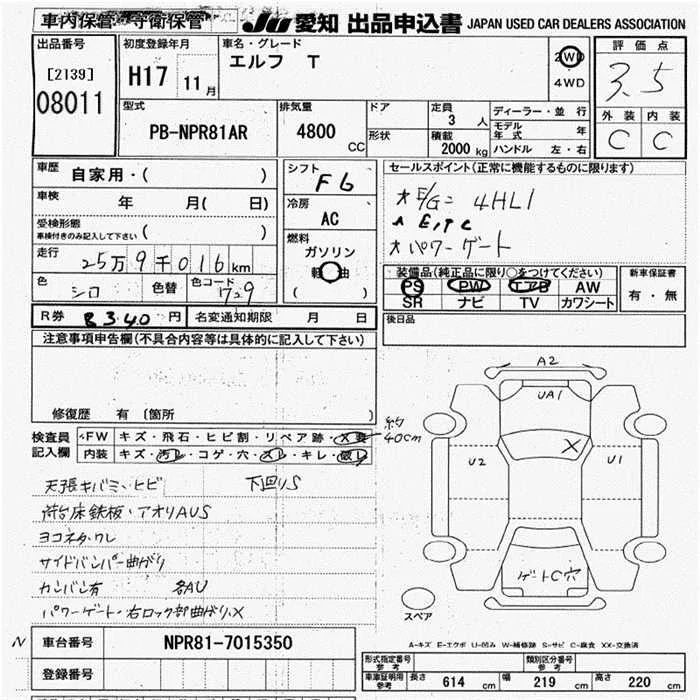 車内保管・守衛保管 JU 愛知 出品申込書 JAPAN USED CAR DEALERS ASSOCIATION
出品番号
[2139]
08011
初度登録年月
H17 11月
車名・グレード
エルフ T
2WD
4WD
評価点
3.5
外装 内装
C C
型式
PB-NPR81AR
排気量
4800 CC
ドア
形状
定員
3人
積載
2000 kg
ディーラー・並行
モデル年式 年
ハンドル 左・右
車歴 自家用・( )
車検 年 月( 日)
受検形態
車検付きのみ記入して下さい ( )
走行 25万9千016km
色 シロ 色替 色コード 729
シフト
F6
冷房
AC
燃料
ガソリン
軽油
( )
セールスポイント(正常に機能するものに限ります)
E/G= 4HL1
E,TC
パワーゲート
装備品(純正品に限り○をつけてください)
PS PW エアB AW
SR ナビ TV カワシート
新車保証書
有・無
R券 8340円 名変通知期限 月 日
後日品
注意事項申告欄(不具合内容等は具体的に記入して下さい)
修復歴 有 (箇所 )
検査員
記入欄
FW キズ・飛石・ヒビ割・リペア跡・X要
約40cm
内装 キズ・汚レ・コゲ・穴・スレ・キレ・破レ
天張キバミ・ヒビ 下回りS
荷台床鉄板・アオリAUS
ヨコネタ・ワレ
サイドバンパー曲がり
カンバン有 各AU
パワーゲート・右ロック部曲がりX
A2
UA1
X
U2
U1
ゲートC穴
スペア
A-キズ E-エクボ U-凹み W-補修跡 S-サビ C-腐食 XX-交換済
N
車台番号 NPR81-7015350
登録番号
型式指定番号
参考
類別区分番号
参考
車庫証明用
参考
長さ 614 cm 幅 219 cm 高さ 220 cm